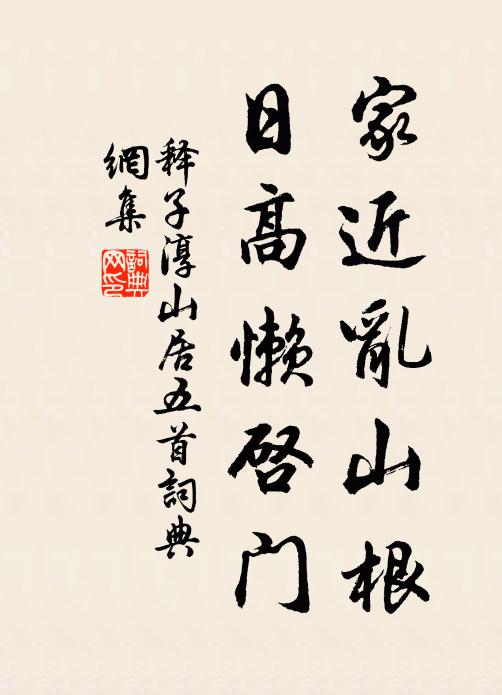 家近亂山根
日高懶启门
释子淳山居五首詞典
網集
詞典
网印